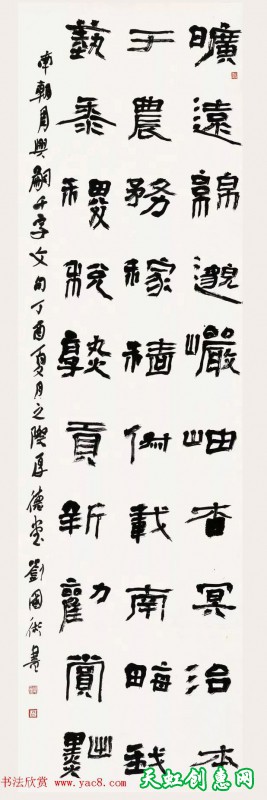 曠遠綿邈巖岫杳冥治本
于農務稼穡俶載南畮我
藝黍稷稅熟貢新勸賞黜
南朝周興嗣千字文句丁酉夏月之際厚德堂劉國術書
书法欣赏 www.yac8.com
天虹创意网